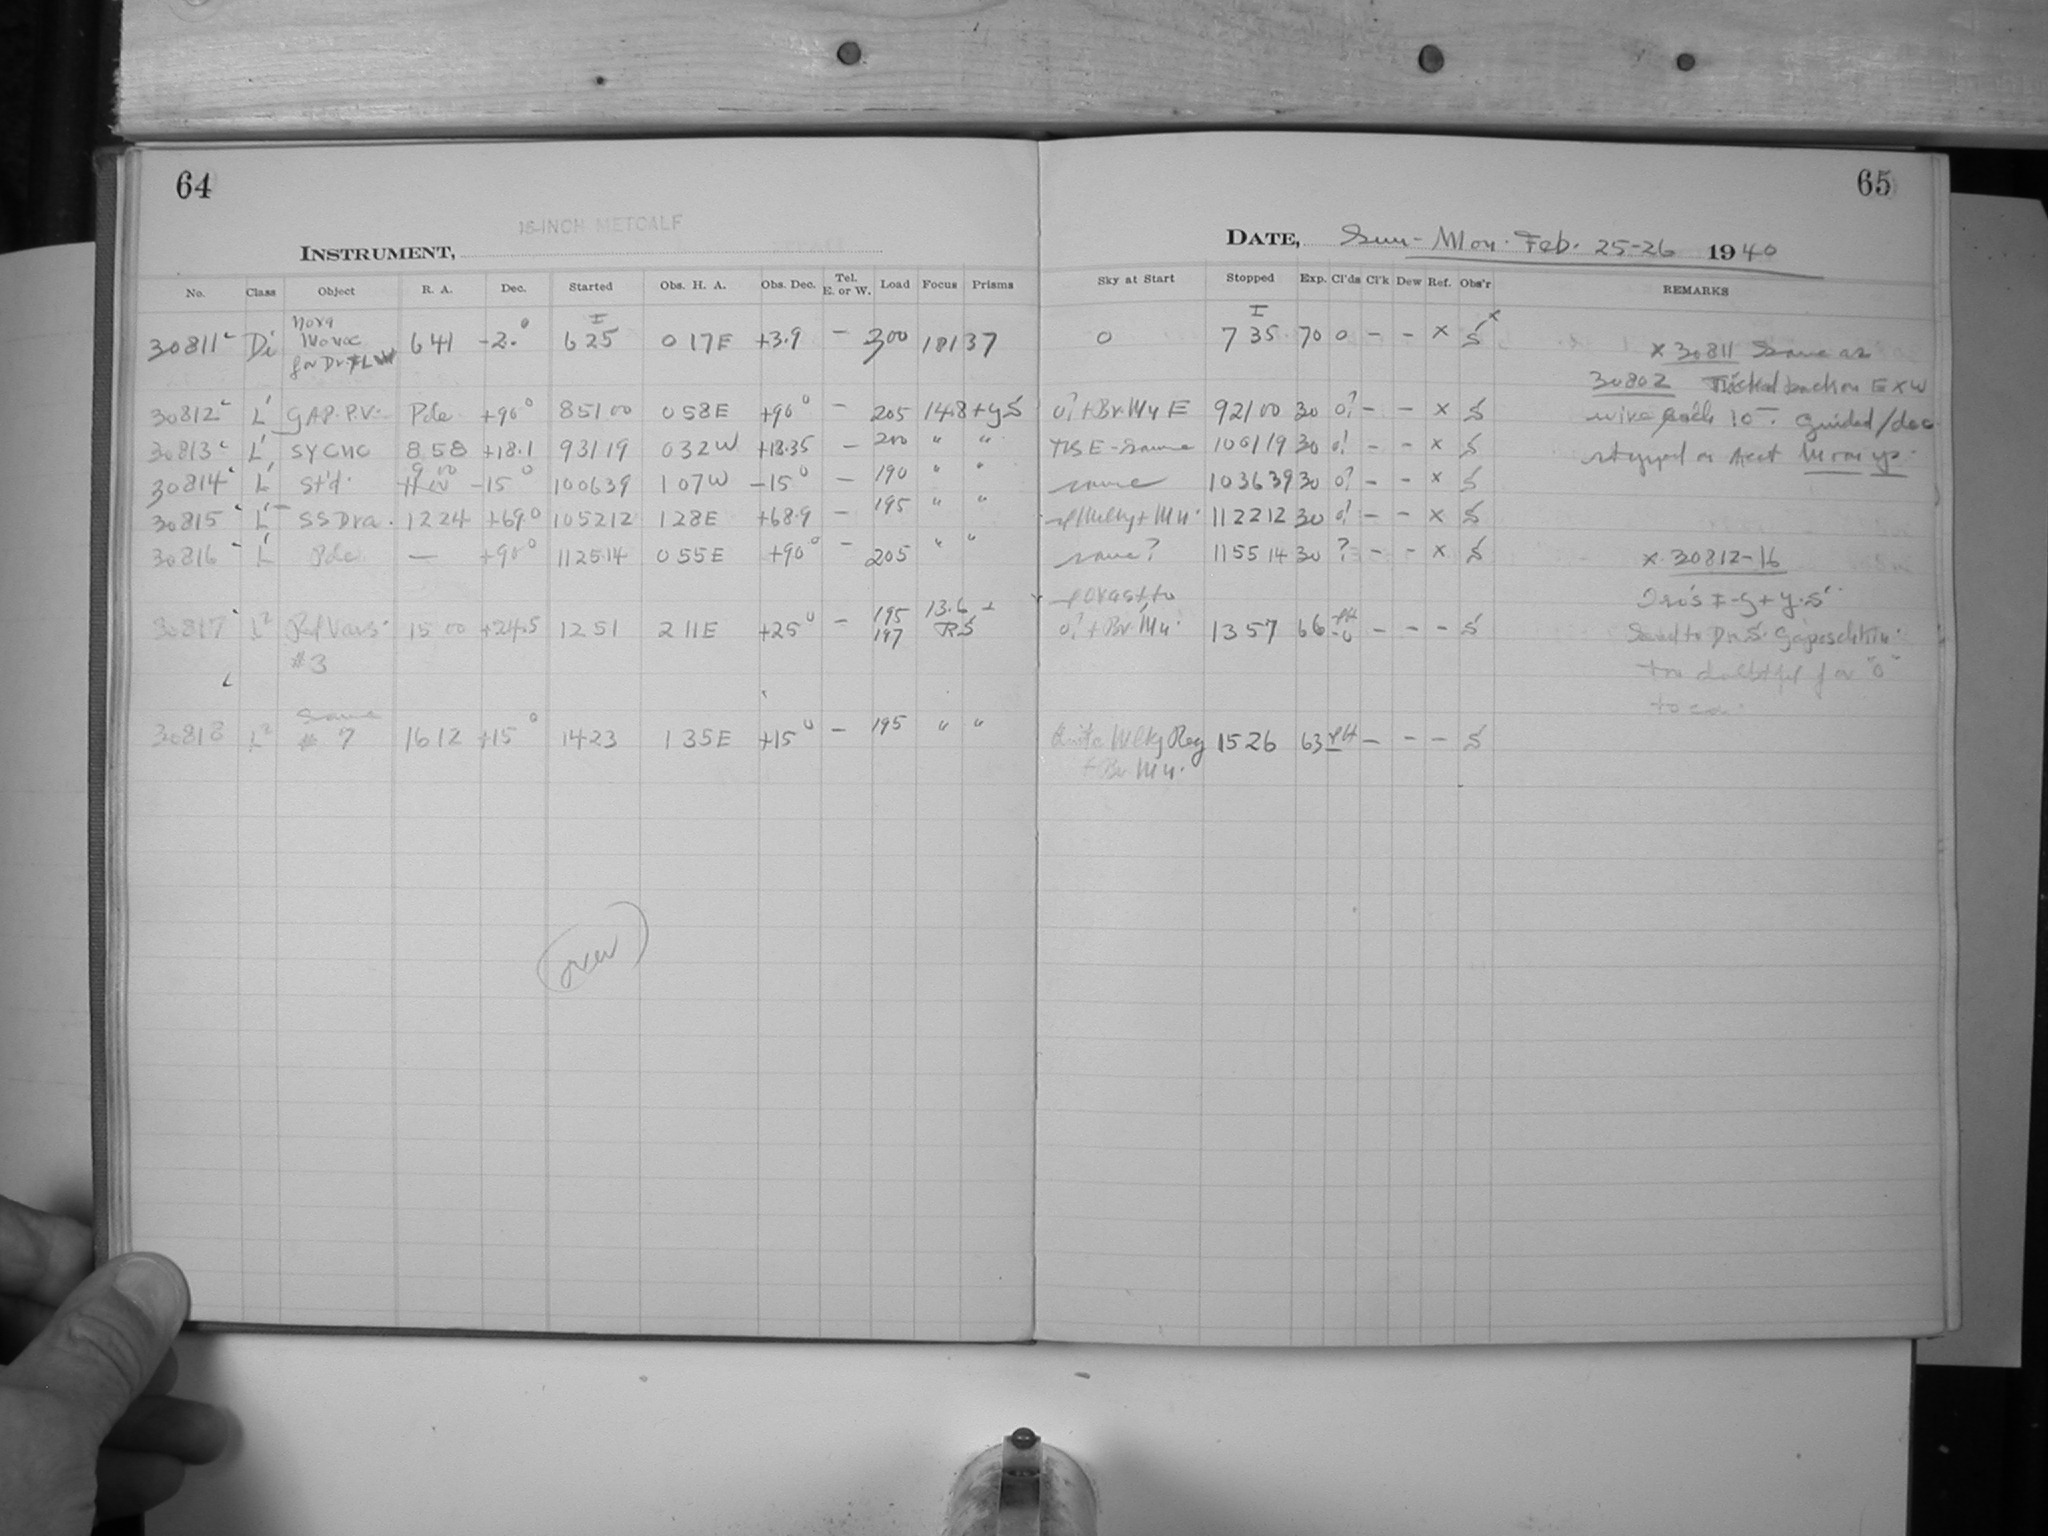 64
16-INCH METCALF
INSTRUMENT,
No. Class Object R. A. Dec. Started Obs. H. A. Obs. Dec. Tel. E. or W. Load Focus Prisms
30811 Di Nova Monoc for Dr. FLW 6 41 -2.° I 6 25 0 17 E +3.9 – 300 18137
30812 L' GAP. P.V. Pole +90° 85100 0 58 E +90° – 205 14.8 + y S
30813 L' SY CNC 8 58 +18.1 93119 0 32 W +18.35 – 200 " "
30814 L' St'd. 9 00 -15° 100639 1 07 W -15° – 190 " "
30815 L' SS Dra. 12 24 +69° 105212 1 28 E +68.9 – 195 " "
30816 L' Pole — +90° 112514 0 55 E +90° – 205 " "
30817 L² Vars #3 15 00 +24.5 12 51 2 11 E +25° – 195 197 13.6 RS
30818 L² Same # 7 16 12 +15° 14 23 1 35 E +15° – 195 " "
over
65
DATE, Sun - Mon. Feb. 25-26 1940
Sky at Start Stopped Exp. Cl'ds Cl'k Dew Ref. Obs'r REMARKS
0 I 7 35 70 0 – – x S x
0? + Br. Mn E 92100 30 0? – – x S
E - Same 100119 30 0? – – x S
same 103639 30 0? – – x S
Milky + Mn. 112212 30 0? – – x S
same? 115514 30 ? – – x S
0? + Br. Mn. 13 57 66 – – – S
Quite Milky Reg + Br Mn. 15 26 63 – – – S
x 30811 Same as
30802 back on E x W
wire each 10 –. Guided/dec.
stopped
x. 30812-16
+ y. S
Dr. S. Gaposchkin.
too doubtful for "0"